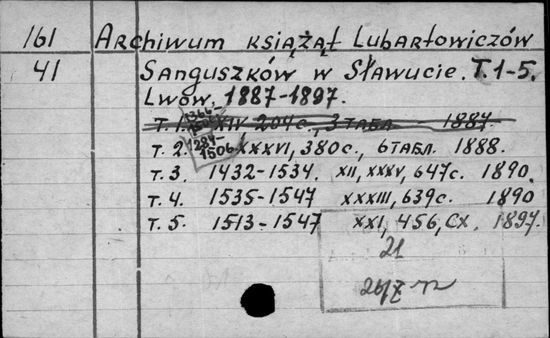 161 Archiwum książąt Lubartowiczów
41 Sanguszków w Sławucie. T. 1-5.
Lwów, 1887-1897.
Т. 1. 1366-1506 XIV 204 с., 3 табл. 1887.
Т. 2. 1284-1506 XXXVI, 380 с., 6 табл. 1888.
Т. 3. 1432-1534. XII, XXXV, 647 с. 1890.
Т. 4. 1535-1547 XXXIII, 639 с. 1890
Т. 5. 1513-1547 XXI, 456, CX. 1897.
21